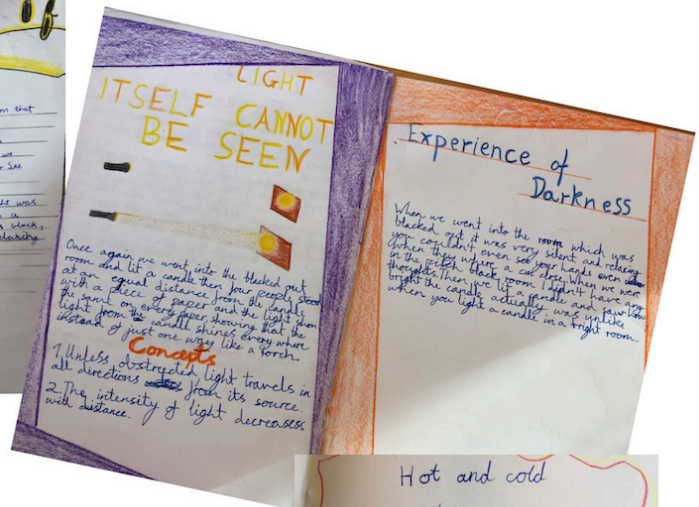 m that
we
see
ght was
a
s black,
LIGHT
ITSELF CANNOT
BE SEEN
Once again we went into the blacked out
room and lit a candle then four people stood
at an equal distance from the candle
with a piece of paper and the light shon
the same on every paper, showing that the
light from the candle shines every where
instead of just one way like a torch.
Concepts
1. Unless obstructed light travels in
all directions from its source.
2. The intensity of light decreasess
with distance.
Experience of
Darkness
When we went into the room which was
blacked out it was very silent and relaxing
you couldn't even see your hands even
when they where a cm close. When we were
in the pitch black room I didn't have any
thoughts. Then we lit a candle and saw how
bright the candle actually was unlike
when you light a candle in a bright room.
Hot and cold